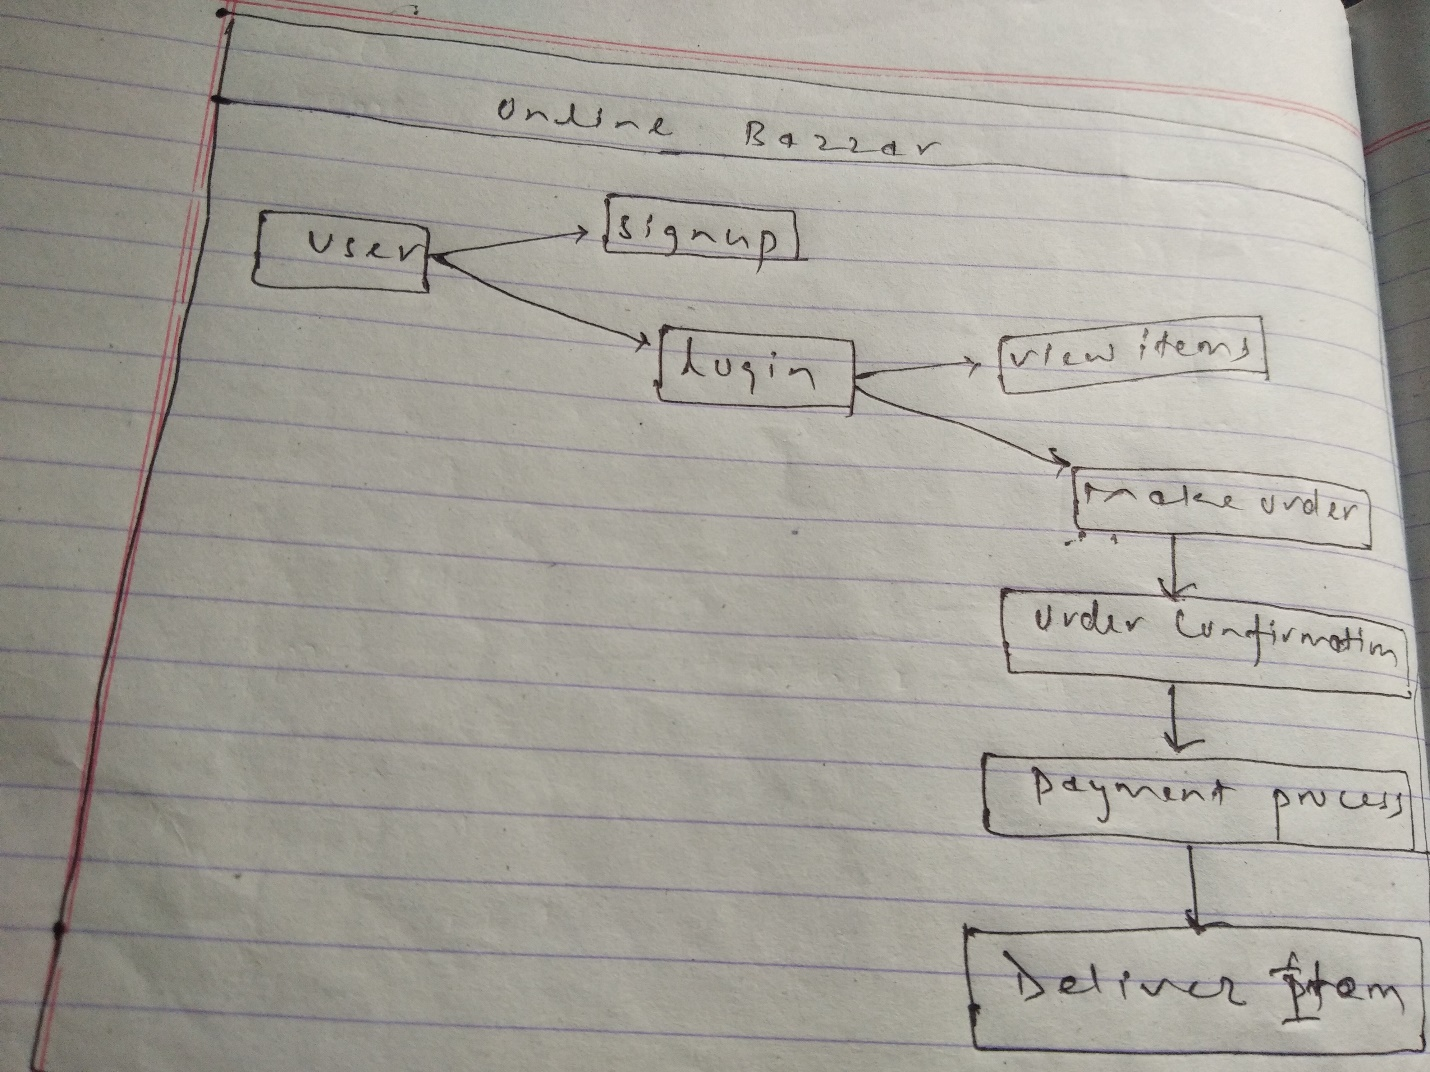 Online Bazzar
User
signup
Login
view items
make order
order confirmation
payment process
Deliver Item